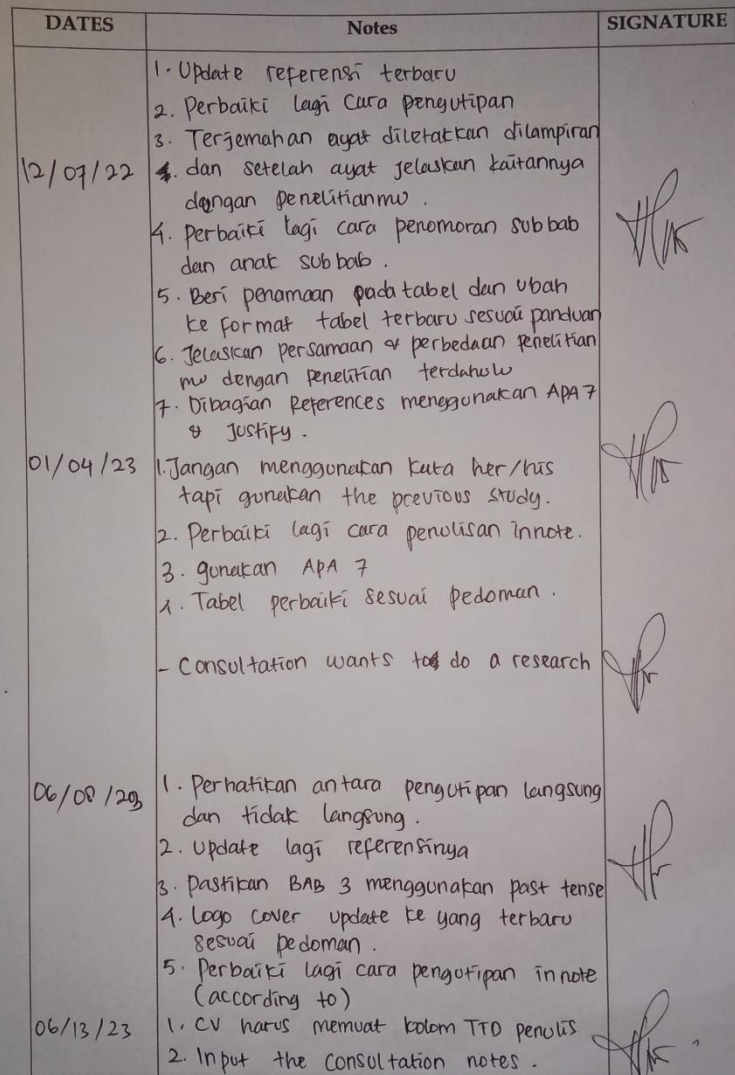 DATES Notes SIGNATURE
1. Update referensi terbaru
2. Perbaiki lagi cara pengutipan
3. Terjemahan ayat diletakkan dilampiran
12/07/22 4. dan setelah ayat jelaskan kaitannya
dengan penelitianmu.
4. Perbaiki lagi cara penomoran sub bab
dan anak sub bab.
5. Beri penamaan pada tabel dan ubah
ke format tabel terbaru sesuai panduan
6. Jelaskan persamaan & perbedaan penelitian
mu dengan penelitian terdahulu
7. Dibagian References menggunakan APA 7
& Justify.
01/04/23 1. Jangan menggunakan kata her/his
tapi gunakan the previous study.
2. Perbaiki lagi cara penulisan innote.
3. gunakan APA 7
4. Tabel perbaiki sesuai pedoman.
- Consultation wants to do a research
06/08/23 1. Perhatikan antara pengutipan langsung
dan tidak langsung.
2. Update lagi referensinya
3. Pastikan BAB 3 menggunakan past tense
4. Logo cover update ke yang terbaru
sesuai pedoman.
5. Perbaiki lagi cara pengutipan innote
(according to)
06/13/23 1. CV harus memuat kolom TTD penulis
2. Input the consultation notes.